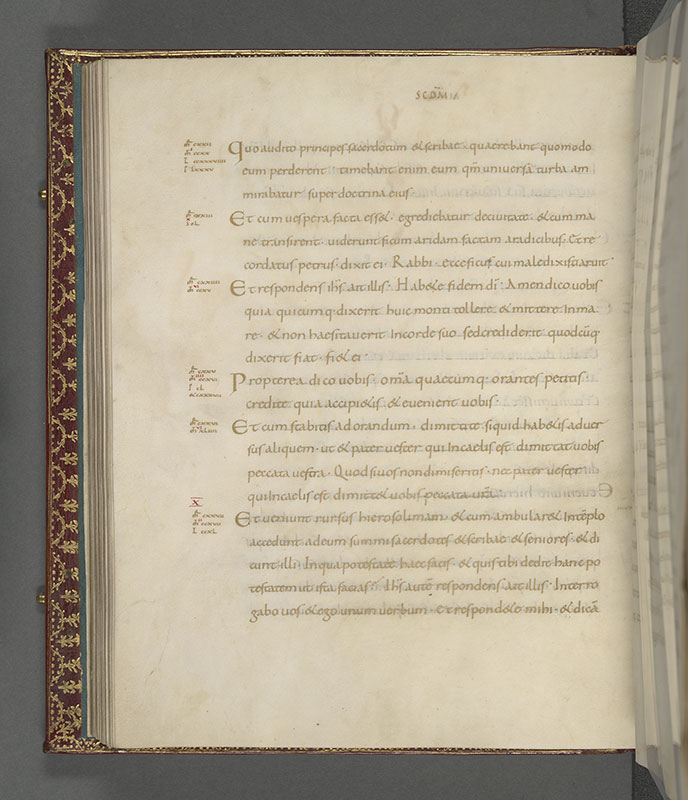 SCDM̄
Quo audito principes sacerdotum & scribae · quaerebant quomodo
eum perderent · timebant enim eum qm̄ universa turba am
mirabatur super doctrina eius ·
Et cum vespera facta ess& · egrediebatur de civitate · & cum ma
ne transirent · viderunt ficum aridam factam a radicibus · Et re
cordatus petrus · dixit ei · Rabbi · ecce ficus cui maledixisti aruit ·
Et respondens ihs̄ ait illis · Hab&e fidem dī · Amen dico vobis
quia quicumq· dixerit huic monti tollere & mittere in ma
re · & non haesitaverit in corde suo · sed crediderit quodcūq·
dixerit fiat · fi& ei ·
Propterea dico vobis · omā quaecumq· orantes petitis
credite quia accipi&is · & evenient vobis ·
Et cum stabitis ad orandum · dimittite siquid hab&is adver
sus aliquem · ut & pater vester qui in caelis est · dimittat vobis
peccata vestra · Quod si vos non dimiseritis · nec pater vester
qui in caelis est dimitt& vobis peccata vr̄a ·
X
Et veniunt rursus hierosolimam · & cum ambular& in templo
accedunt ad eum summi sacerdotes & scribae & seniores · & di
cunt illi · In qua potestate haec facis · & quis tibi dedit hanc po
testatem ut ista facias · Ihs̄ autē respondens ait illis · Interro
gabo vos & ego unum verbum · & respond&e mihi · & dicā